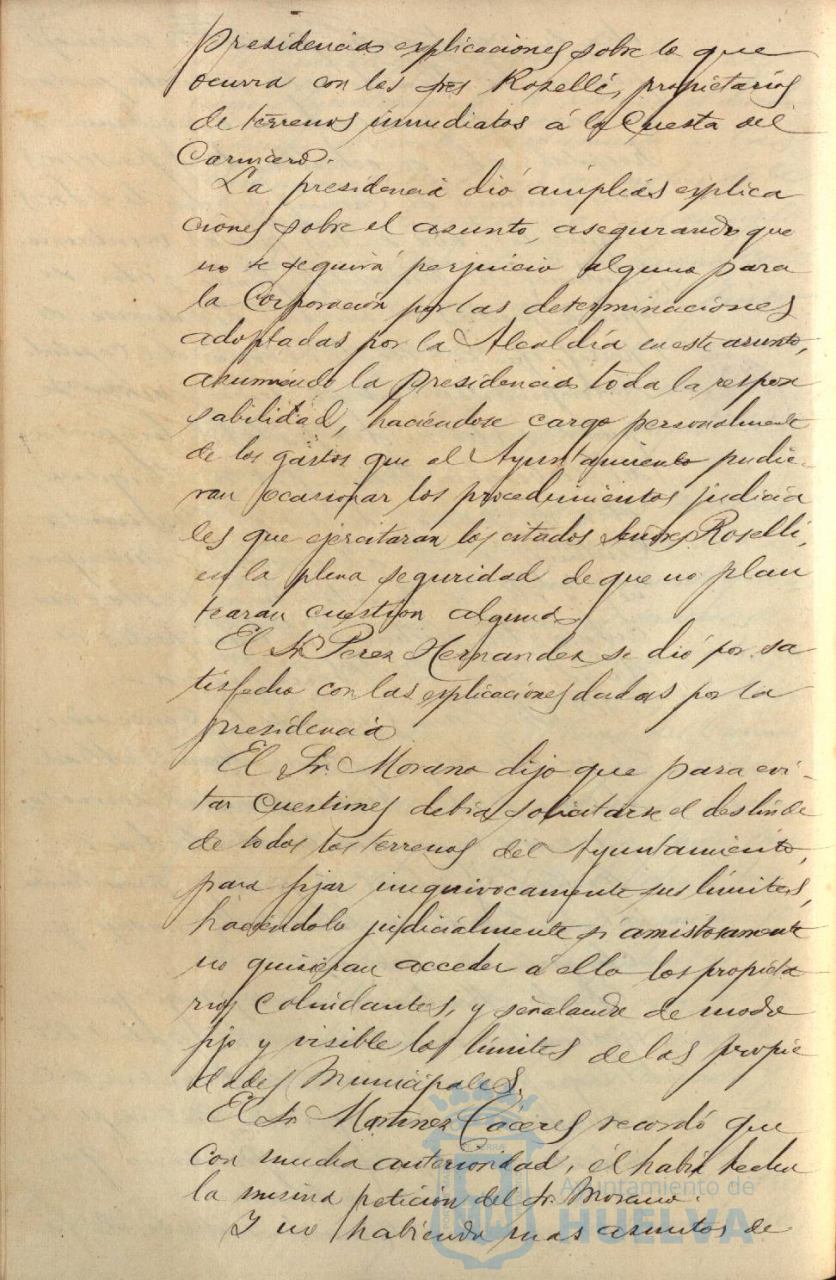 presidencia explicaciones sobre lo que
ocurra con los sres Roselló, propietarios
de terrenos inmediatos á la Cuesta del
Carnicero.
La presidencia dió amplias explica
ciones sobre el asunto, asegurando que
no se seguirá perjuicio alguno para
la Corporación por las determinaciones
adoptadas por la Alcaldía en este asunto,
asumiendo la presidencia toda la respon
sabilidad, haciéndose cargo personalmente
de los gastos que al Ayuntamiento pudie-
ran ocasionar los procedimientos judicia
les que ejercitaran los citados Señores Roselli,
en la plena seguridad de que no plan
tearan cuestion alguna.
El Sr. Perez Hernandez se dió por sa
tisfecho con las explicaciones dadas por la
presidencia
El Sr. Morano dijo que para evi-
tar cuestiones debia solicitarse el deslinde
de todos los terrenos del Ayuntamiento,
para fijar inequivocamente sus límites,
haciéndolo judicialmente si amistosamente
no quisieran acceder á ello los propieta
rios colindantes, y señalando de modo
fijo y visible los límites de las propie
dades Municipales.
El Sr. Martinez Cáceres recordó que
con mucha anterioridad, él habia hecho
la misma peticion del Sr. Morano.
Y no habiendo mas asuntos de
Ayuntamiento de
HUELVA